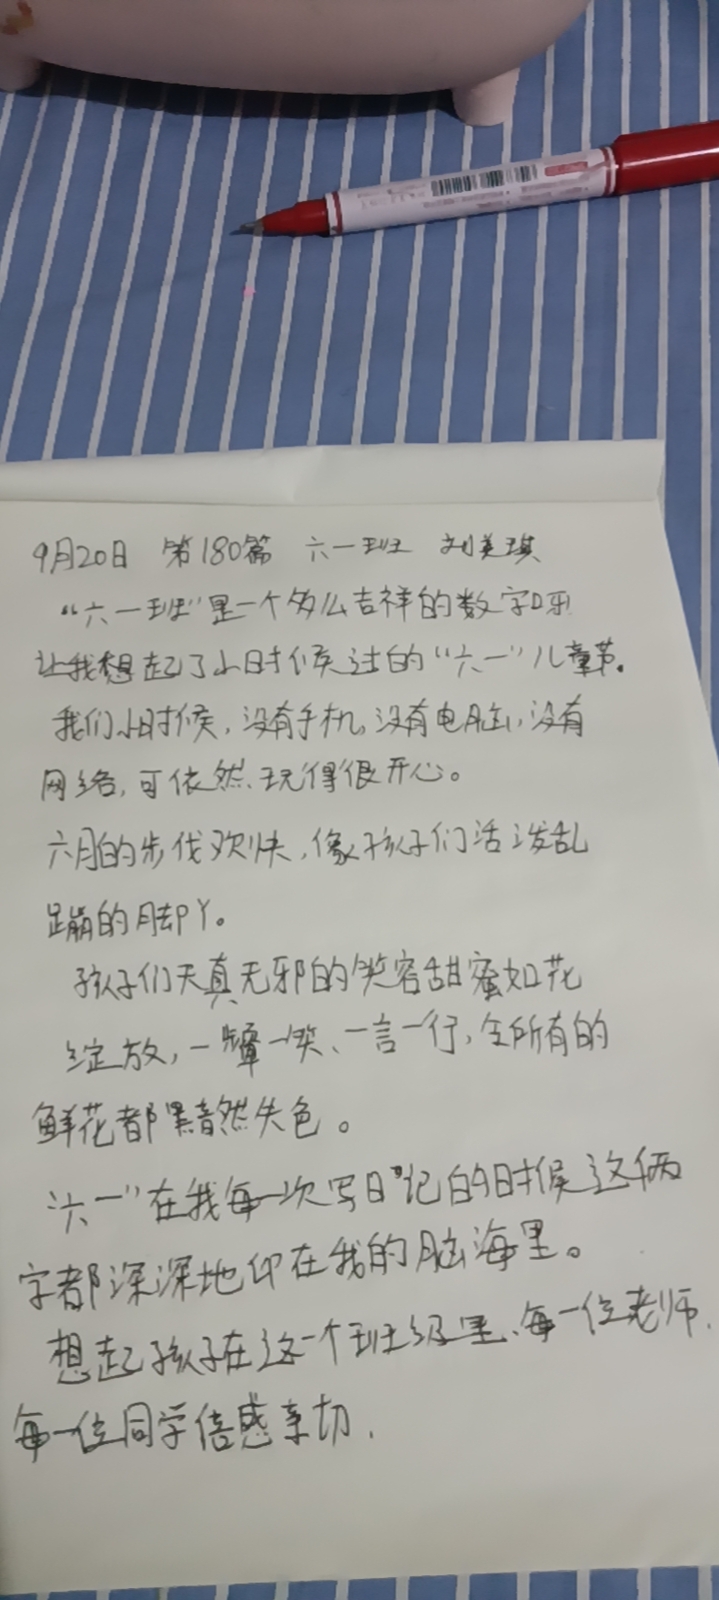 9月20日 第180篇 六一班 刘美琪
“六一班”是一个多么吉祥的数字呀
让我想起了小时候过的“六一”儿童节。
我们小时候,没有手机,没有电脑,没有
网络,可依然玩得很开心。
六月的步伐欢快,像孩子们活泼乱
蹦的脚丫。
孩子们天真无邪的笑容甜蜜如花
绽放,一颦一笑、一言一行,令所有的
鲜花都黯然失色。
“六一”在我每一次写日记的时候这俩
字都深深地印在我的脑海里。
想起孩子在这一个班级里、每一位老师,
每一位同学倍感亲切.